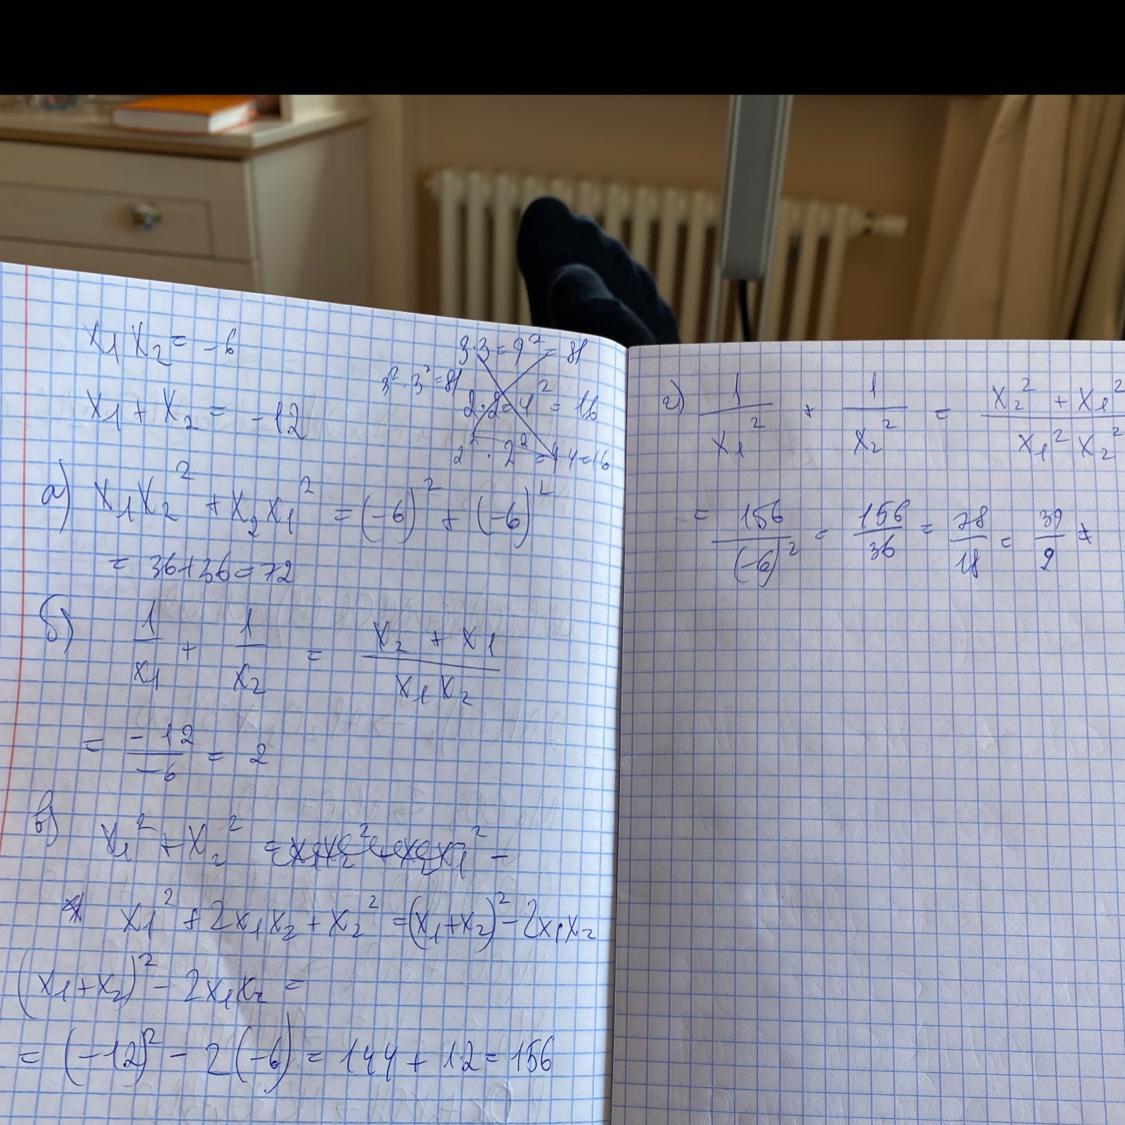 x₁x₂ = -6
x₁ + x₂ = -12
3·3=9²=81
3²·3²=81
2·2=4²=16
2²·2²=4·4=16
а) x₁x₂² + x₂x₁² = (-6)² + (-6)²
= 36+36=72
б) 1/x₁ + 1/x₂ = (x₂ + x₁)/(x₁x₂)
= -12/-6 = 2
в) x₁² + x₂² =
x₁² + 2x₁x₂ + x₂² = (x₁+x₂)² - 2x₁x₂
(x₁+x₂)² - 2x₁x₂ =
= (-12)² - 2(-6) = 144 + 12 = 156
г) 1/x₁² + 1/x₂² = (x₂² + x₁²)/(x₁² x₂²)
= 156/(-6)² = 156/36 = 78/18 = 39/9